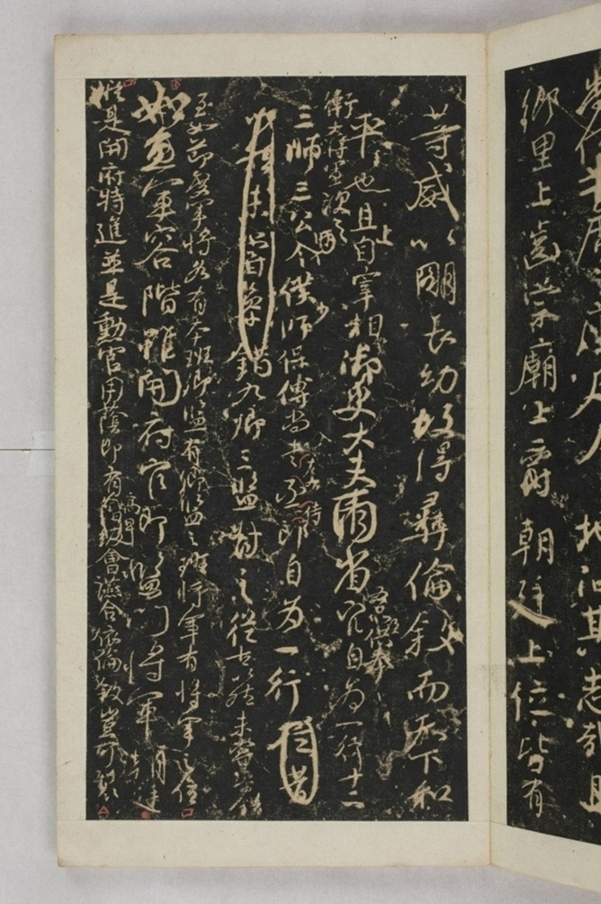 鄉里上齒宗廟上爵朝廷上位皆有
等威以明長幼故得彝倫敘而天下和
平也且上自宰相御史大夫兩省五品以上供奉官自為一行十二
衛大將軍次之
三師三公令僕少師保傅尚書左右丞侍郎自為一行
九卿三監對之從古以然未嘗參錯
至如節度軍將各有本班卿監有卿監之班將軍有將軍之位
如魚軍容階雖開府官即監門將軍朝廷
縱是開府特進並是勳官用蔭即有高卑會讌合依倫敘豈可裂